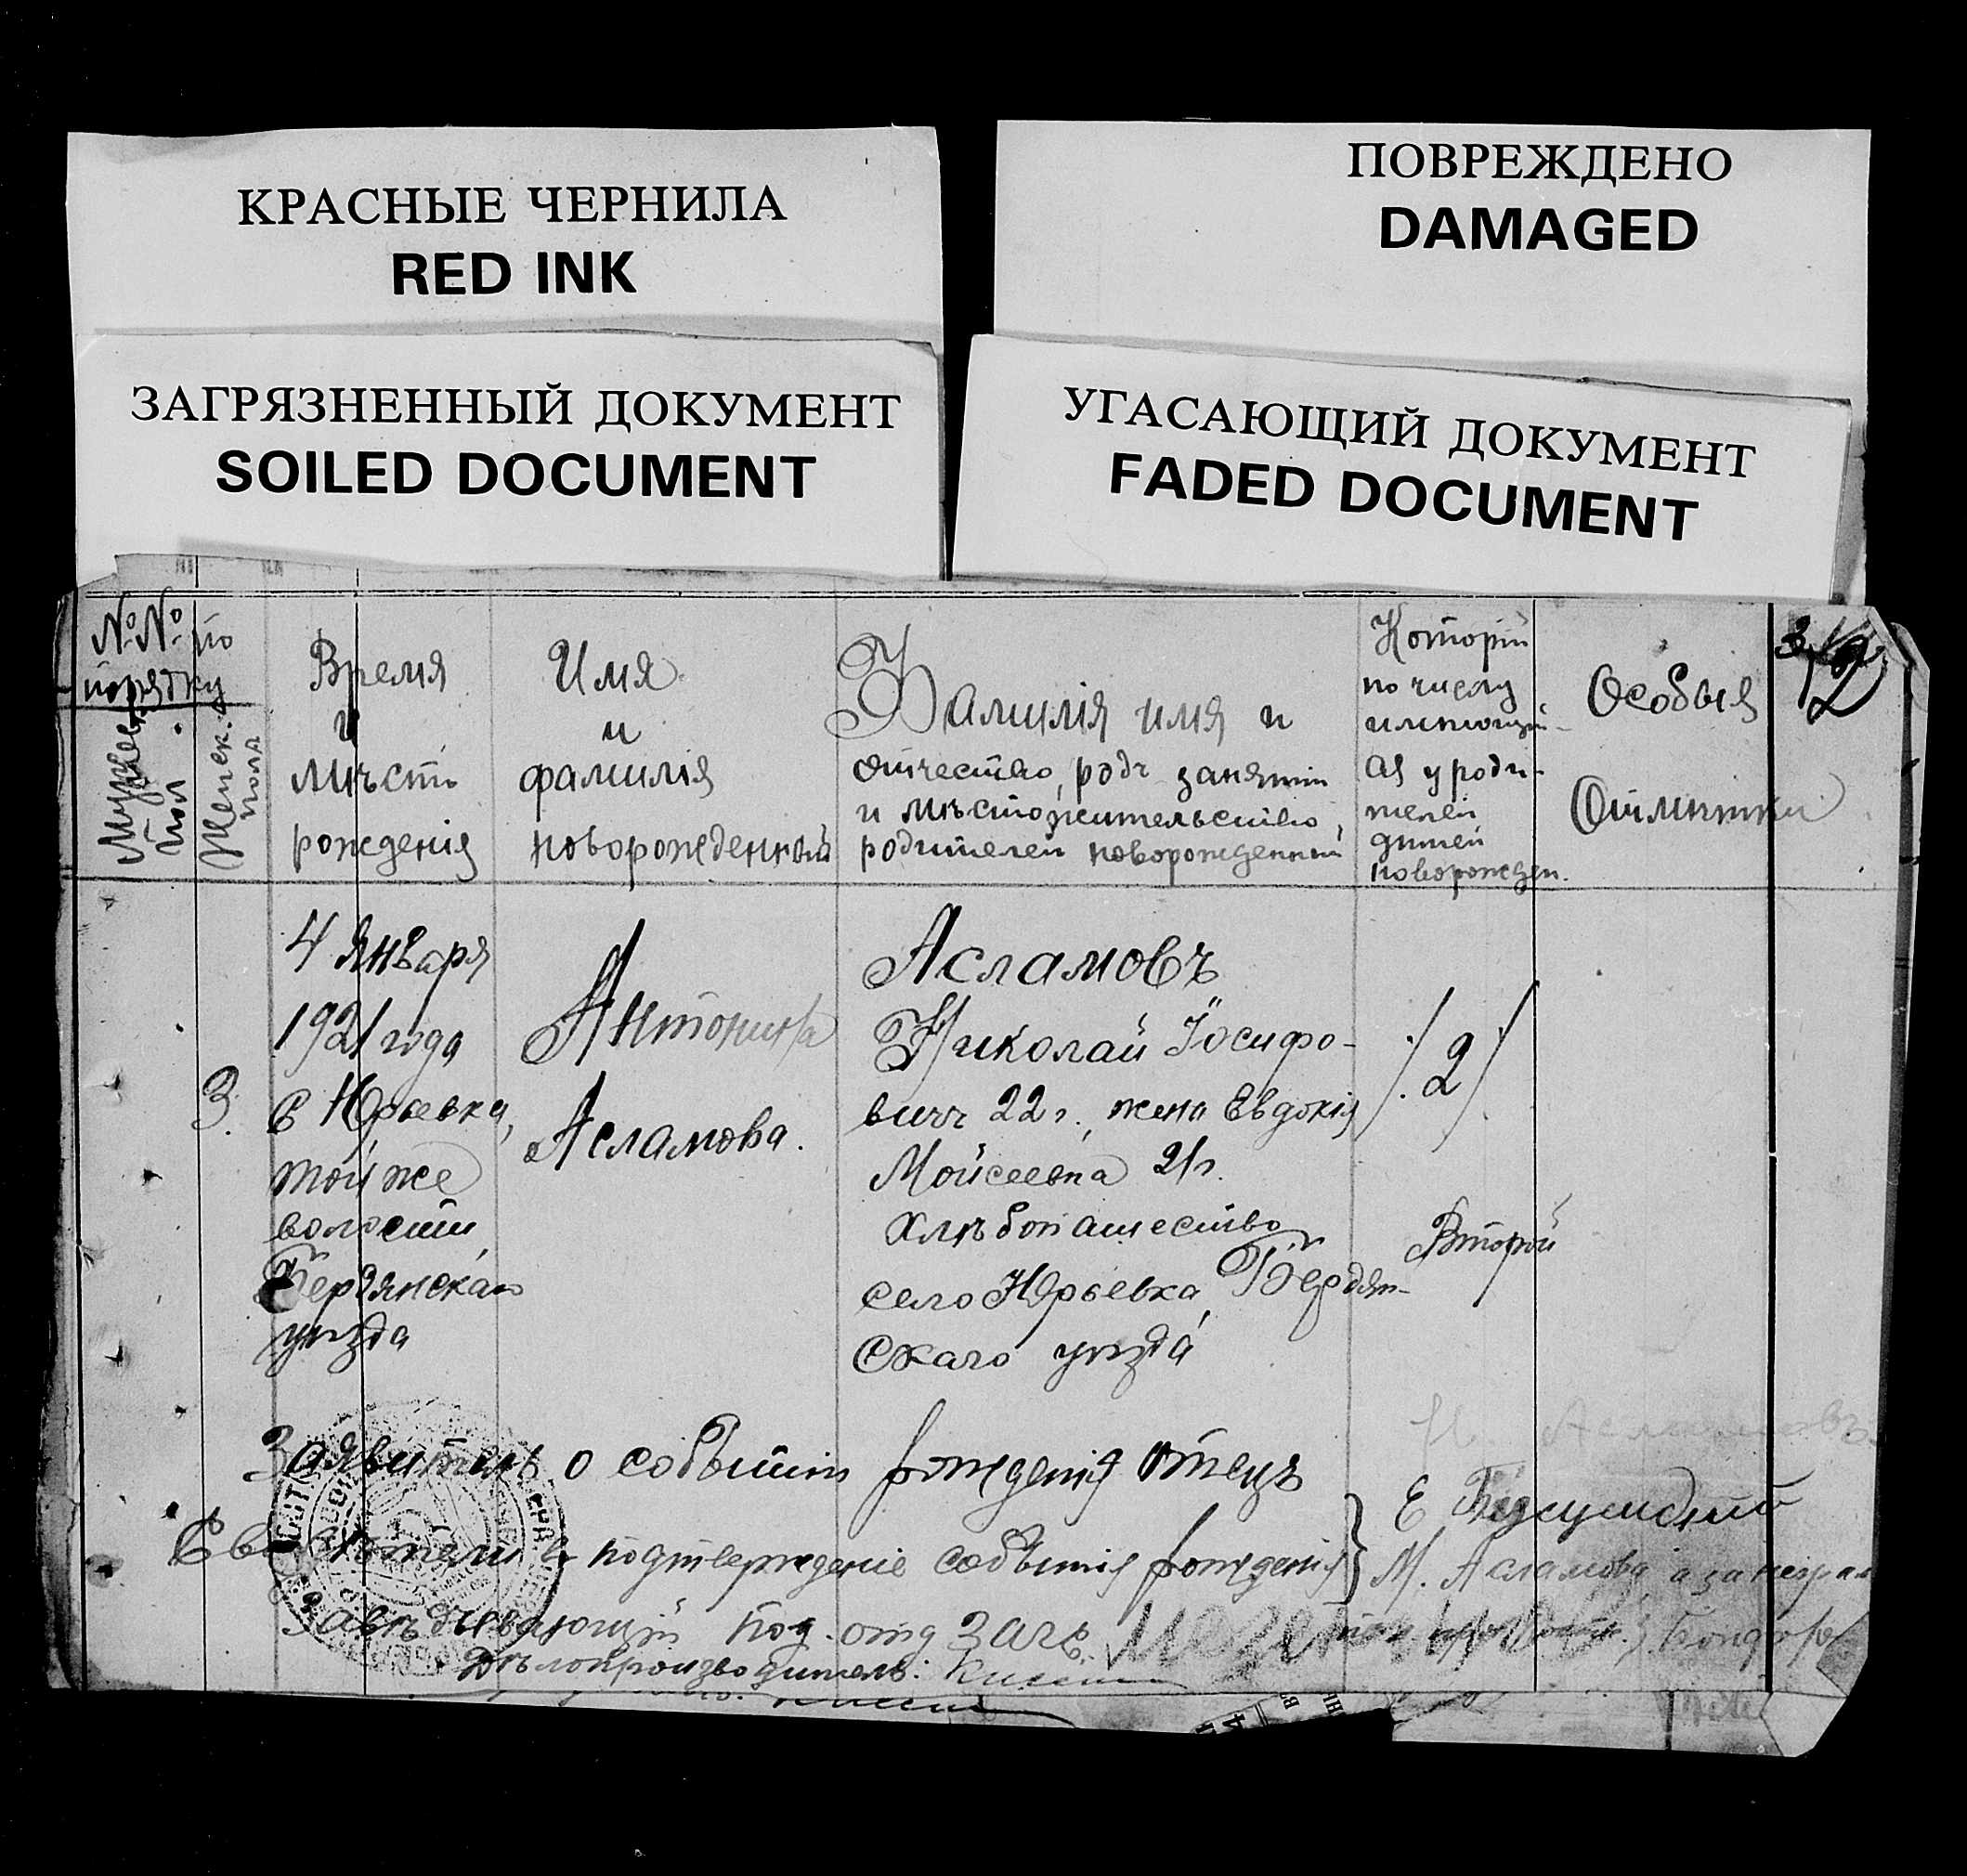 КРАСНЫЕ ЧЕРНИЛА
RED INK
ПОВРЕЖДЕНО
DAMAGED
ЗАГРЯЗНЕННЫЙ ДОКУМЕНТ
SOILED DOCUMENT
УГАСАЮЩИЙ ДОКУМЕНТ
FADED DOCUMENT
№ № по
порядку
Мужеск.
пол
Женск.
пола
Время
и
мѣсто
рожденія
Имя
и
фамилія
новорожденной
Фамилія имя и
отчество, родъ занятій
и мѣстожительство,
родителей новорожденной
Который
по числу
имѣющий-
ся у роди-
телей
дѣтей
новорожден.
Особыя
Отмѣтки
3.
4 Января
1921 года
с Юрьевка,
той же
волости,
Бердянскаго
уѣзда
Антонина
Асламова.
Асламовъ
Николай Іосифо-
вичъ 22 г., жена Евдокія
Мойсеевна 21 г.
Хлѣбопашество
село Юрьевка, Бердян-
скаго уѣзда
/2/
Второй
Заявитель о событіи рожденія отецъ
Н. Асламовъ
Свидѣтели в подтвержденіе событія рожденія
Е
М. Асламова, а за неграм
Завѣдывающій под. отд. Загс.
Дѣлопроизводитель: